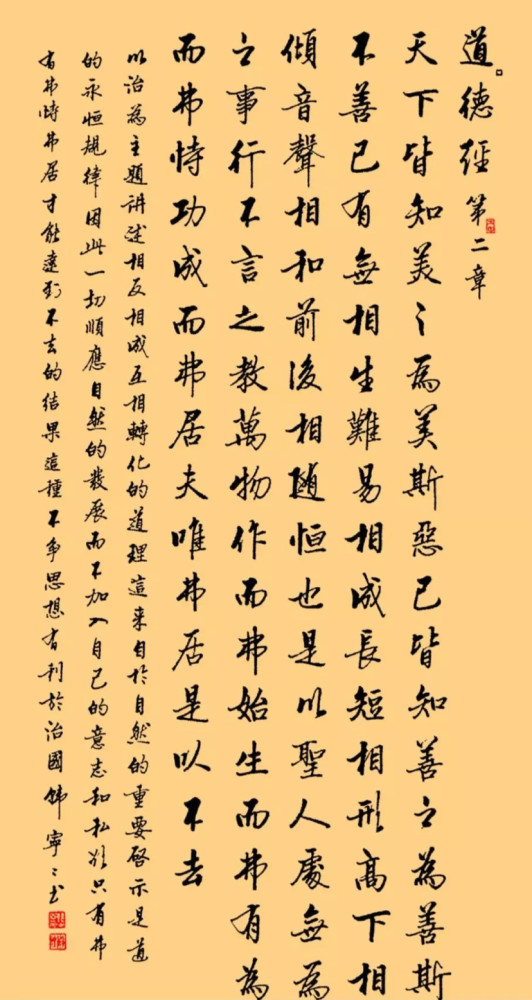 道德經 第二章
天下皆知美之為美斯惡已皆知善之為善斯
不善已有無相生難易相成長短相形高下相
傾音聲相和前後相隨恒也是以聖人處無為
之事行不言之教萬物作而弗始生而弗有為
而弗恃功成而弗居夫唯弗居是以不去
以治為主題講述相反相成互相轉化的道理這來自於自然的重要啟示是道
的永恒規律因此一切順應自然的發展而不加入自己的意志和私欲只有弗
有弗恃弗居才能達到不去的結果這種不爭思想有利於治國 韩寧寧书